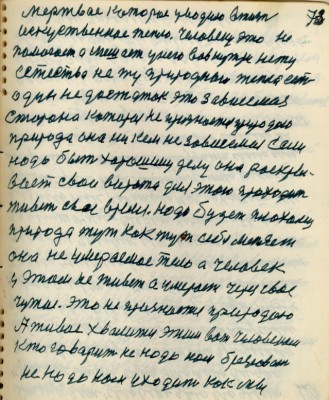 73
мертвое которое уходило в тот
искусственное тело. Человеку это не
помогает а мешает у него вовнутри нету
естества на ту природным тепла ест
один не достаток это зависимая
сторона которая не признается природою
природа она ни кем не зависимая Если
надо быт хорошему делу она раскры-
вает свои ворота для этого проходит
живет свое время. Надо будет плохому
природа тут как тут себя меняет
она не умераемое тело а человек
у этом не живет а умерает через свое
чужое. Это не признается природою
А живое хвалимы этим вот человеком
Кто говорит не надо нам
не надо нам уходить как мы